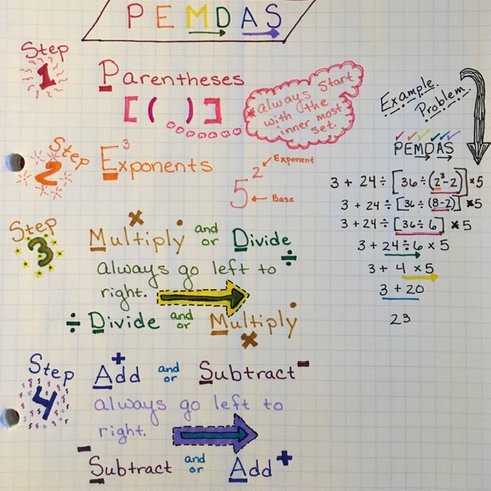 PEMDAS
Step 1
Parentheses
[( )]
*always start
with the
inner most
set.
Step 2
Exponents³
5²
Exponent
Base
Step 3
× Multiply · and or Divide ÷
always go left to
right.
÷ Divide and or Multiply · ×
Step 4
Add + and or Subtract -
always go left to
right.
- Subtract and or Add +
Example
Problem
PEMDAS
3 + 24 ÷ [36 ÷ (2³-2)] × 5
3 + 24 ÷ [36 ÷ (8-2)] × 5
3 + 24 ÷ [36 ÷ 6] × 5
3 + 24 ÷ 6 × 5
3 + 4 × 5
3 + 20
23